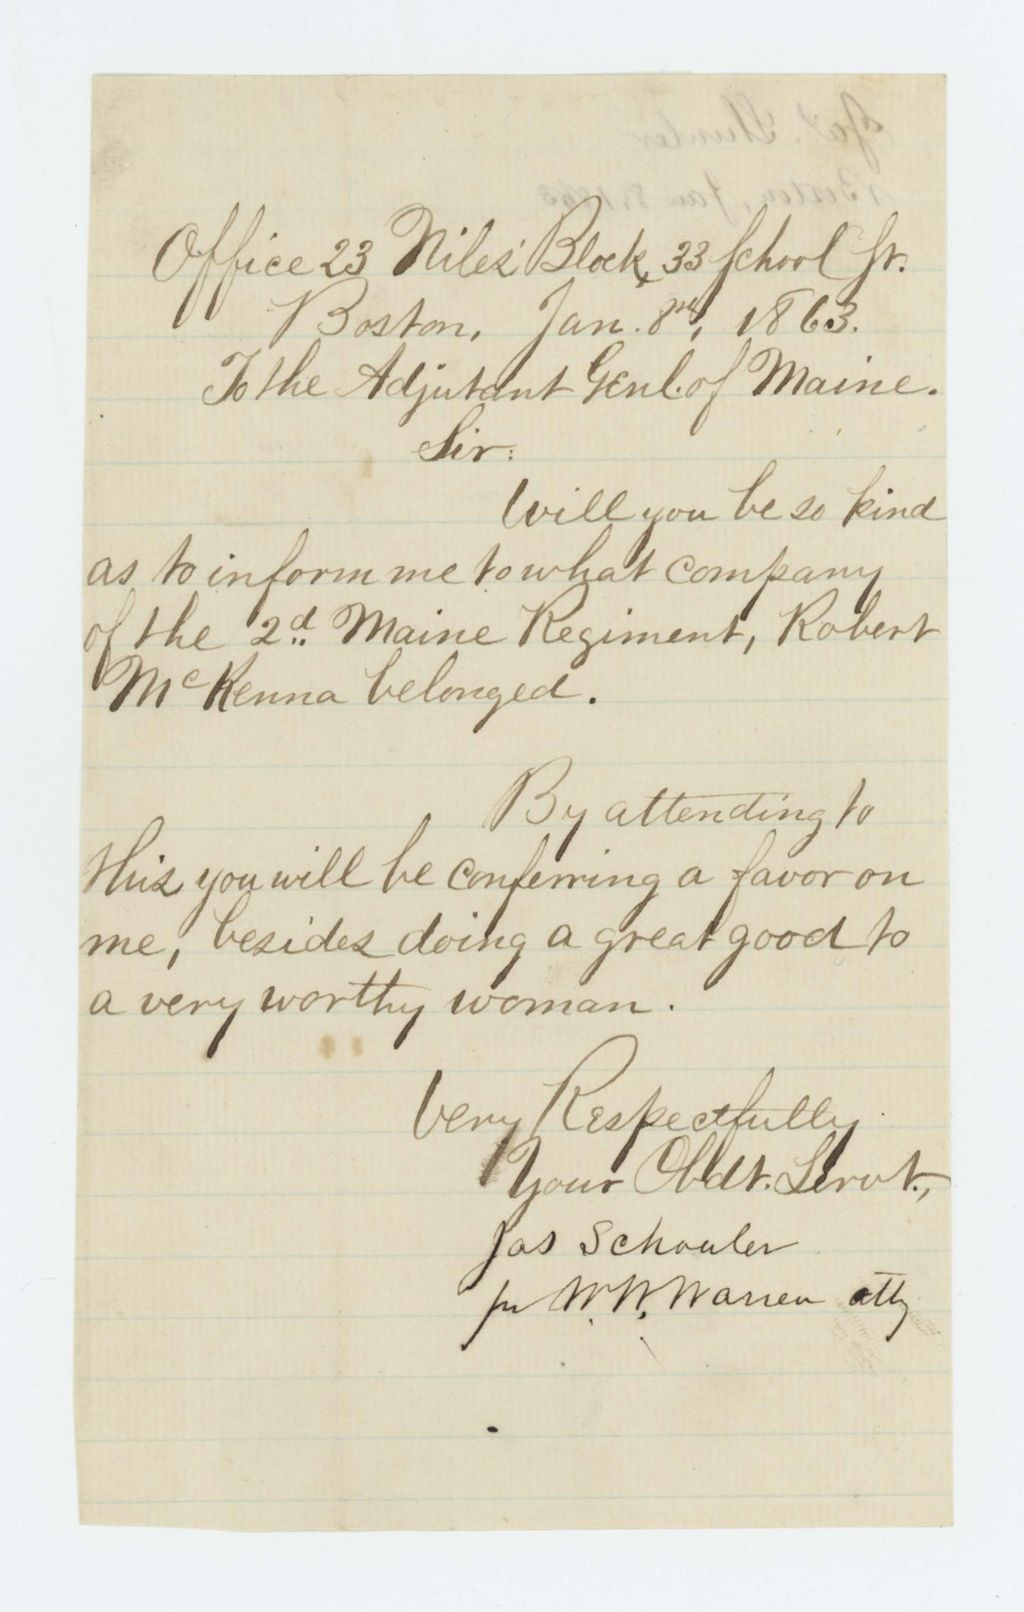 Office 23 Niles' Block, 33 School St.
Boston, Jan. 8th, 1863.
To the Adjutant Genl. of Maine.
Sir:
Will you be so kind
as to inform me to what company
of the 2d. Maine Regiment, Robert
McKenna belonged.
By attending to
this you will be conferring a favor on
me, besides doing a great good to
a very worthy woman.
Very Respectfully
Your Obdt. Servt.,
Jas Schouler
per W. W. Warren atty